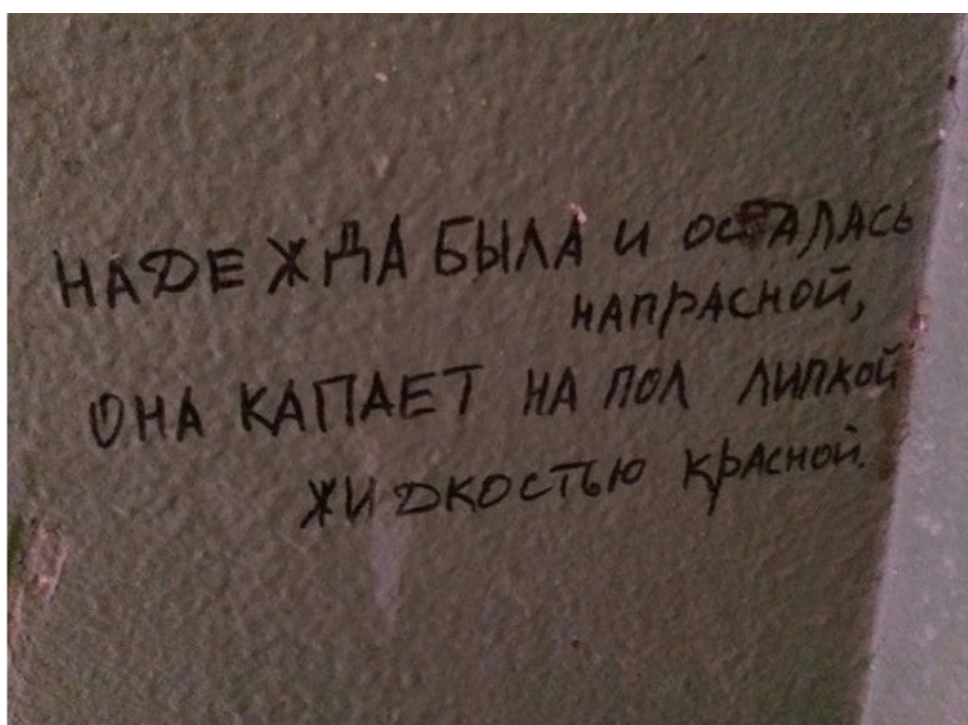 НАДЕЖДА БЫЛА И ОСТАЛАСЬ
НАПРАСНОЙ,
ОНА КАПАЕТ НА ПОЛ ЛИПКОЙ
ЖИДКОСТЬЮ КРАСНОЙ.